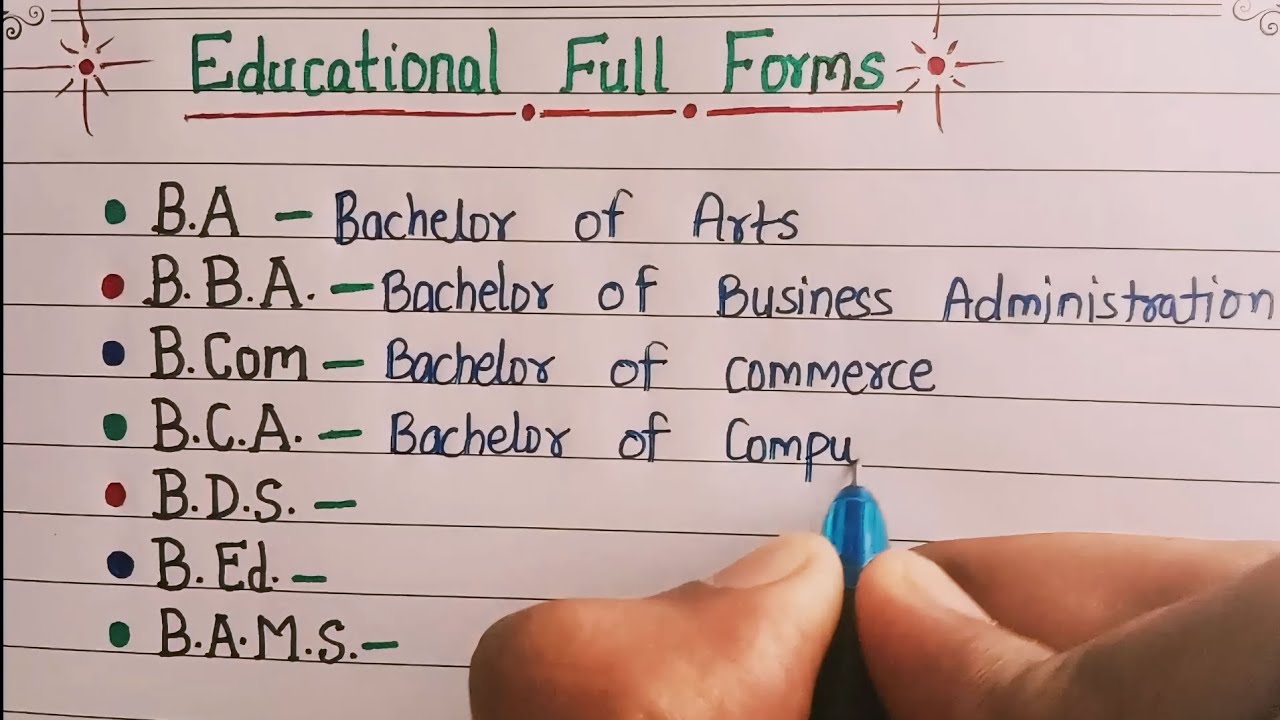 Educational Full Forms
B.A - Bachelor of Arts
B.B.A. - Bachelor of Business Administration
B.Com - Bachelor of commerce
B.C.A. - Bachelor of Compu
B.D.S. -
B.Ed. -
B.A.M.S. -